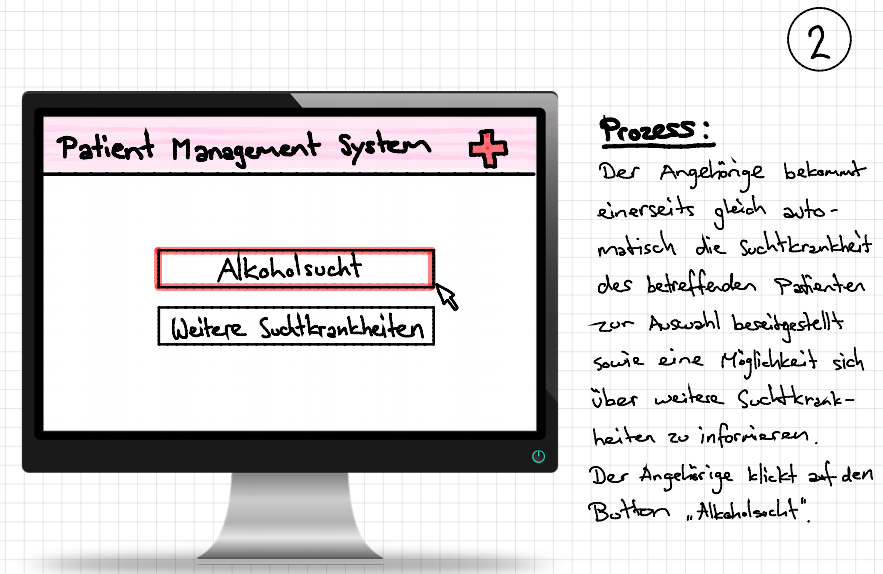 2
Patient Management System
Alkoholsucht
Weitere Suchtkrankheiten
Prozess:
Der Angehörige bekommt
einerseits gleich auto-
matisch die Suchtkrankheit
des betreffenden Patienten
zur Auswahl bereitgestellt
sowie eine Möglichkeit sich
über weitere Suchtkrank-
heiten zu informieren.
Der Angehörige klickt auf den
Button „Alkoholsucht".